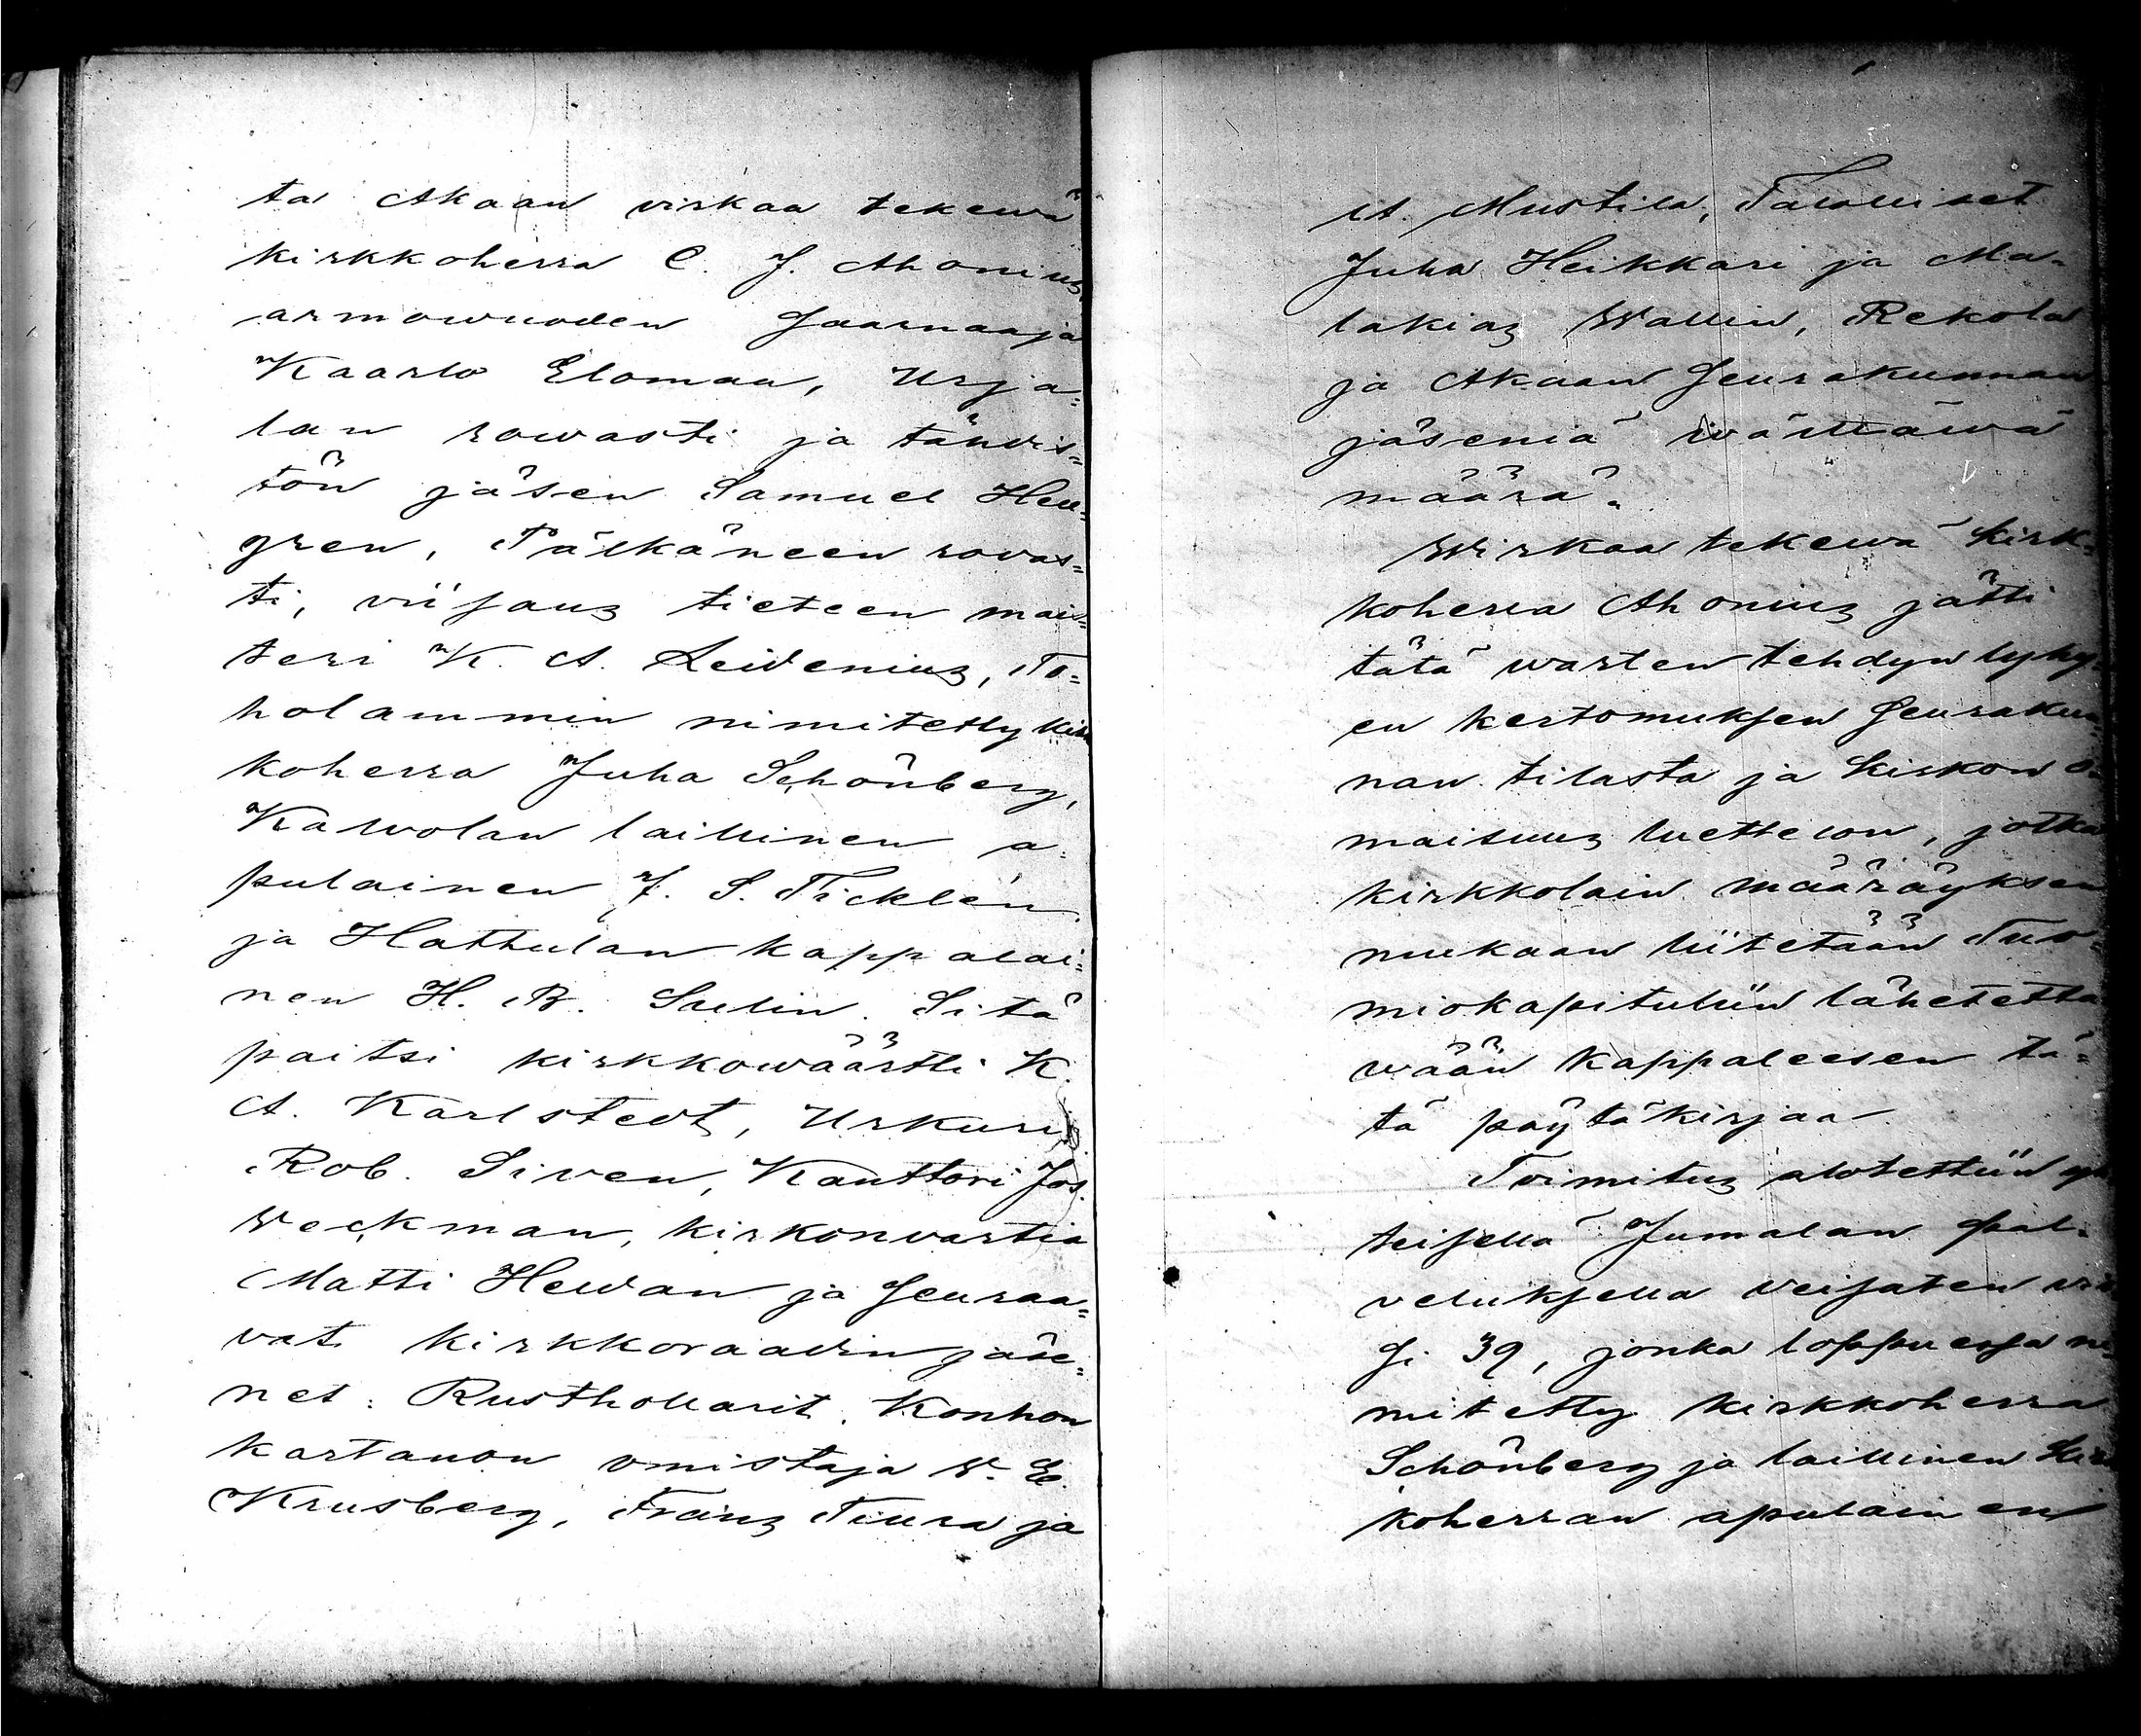 ta Akaan virkaa tekewä
kirkkoherra C. J. Ahonius,
armowuoden Saarnaaja
Kaarlo Elomaa, Urja=
lan rowasti ja tähdis=
tön jäsen Samuel Hell=
gren, Pälkäneen rovas=
ti, viisaus tieteen mais=
teri K. A. Leidenius, To=
holammin nimitetty kirk
koherra Juha Schönberg,
Kalvolan laillinen a=
pulainen J. S. Ticklén
ja Hattulan kappalai=
nen H. B. Sulin. Sitä
paitsi kirkkowäärtti K.
A. Karlstedt, Urkuri
Rob. Siven, Kanttori Jos.
Veckman, kirkonvartia
Matti Helldan ja Seuraa=
vat kirkkoraadin jäse=
net: Rusthollarit, Konhon
kartanon omistaja V. E.
Krusberg, Frans Tiura ja
A. Mustila, Talolliset
Juha Heikkari ja Ma=
lakias Wallin, Rekola
ja Akaan Seurakunnan
jäseniä wälttäwä
määrä.
Wirkaa tekewä kirk=
koherra Ahonius jätti
tätä warten tehdyn lyhy=
en kertomuksen Seurakun=
nan tilasta ja kirkon o=
maisuus luettelon, jotka
kirkkolain määräyksen
mukaan liitetään Tuo=
miokapituliin lähetettä
wään kappaleesen tä=
tä pöytäkirjaa.
Toimitus alotettiin yh
teisellä Jumalan pal=
veluksella veisaten vir
si 39, jonka loppuessa ni=
mitetty kirkkoherra
Schönberg ja laillinen kirk
koherran apulainen